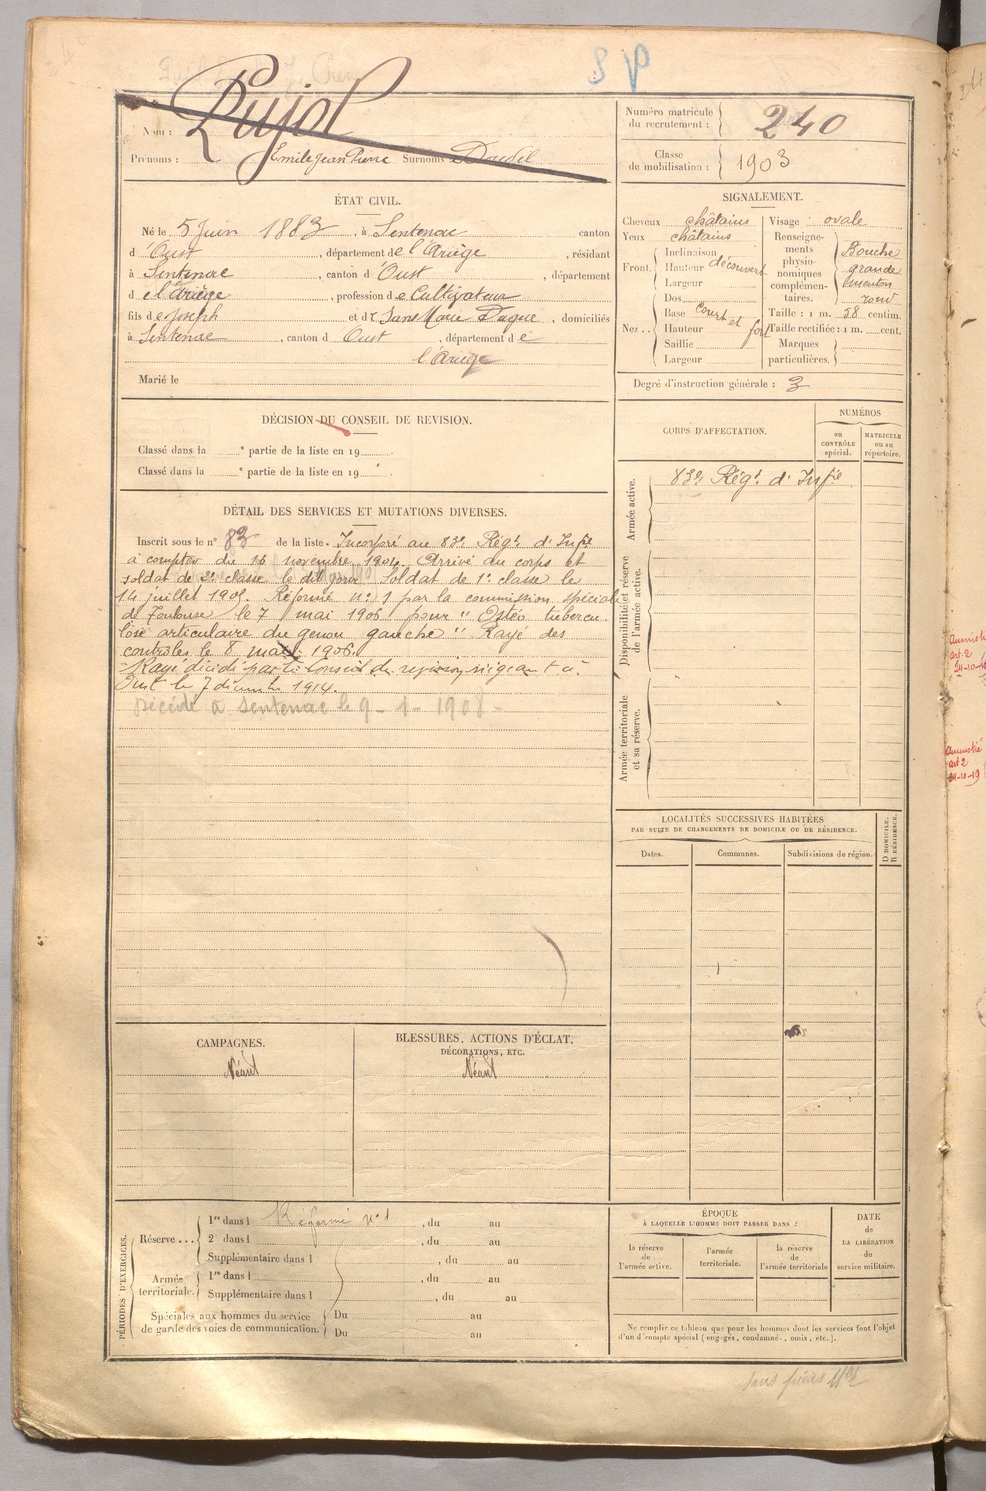 S P
Nom : Pujol
Prénoms : Emile Jean Pierre Surnoms
Numéro matricule du recrutement : 240
Classe de mobilisation : 1903
ÉTAT CIVIL.
Né le 5 Juin 1883, à Sentenac canton
d'Oust, département de l'Ariège, résidant
à Sentenac, canton d'Oust, département
de l'Ariège, profession de Cultivateur
fils de Joseph et d Marie, domiciliés
à Sentenac, canton d Oust, département de
l'Ariège
Marié le
SIGNALEMENT.
Cheveux châtains
Yeux châtains
Front. Inclinaison
Hauteur découvert
Largeur
Nez.. Dos
Base court et fort
Hauteur
Saillie
Largeur
Visage : ovale
Renseignements physionomiques complémentaires. Bouche
grande
menton
rond
Taille : 1 m. 58 centim.
Taille rectifiée : 1 m. cent.
Marques particulières.
Degré d'instruction générale : 3
DÉCISION DU CONSEIL DE REVISION.
Classé dans la e partie de la liste en 19
Classé dans la e partie de la liste en 19
DÉTAIL DES SERVICES ET MUTATIONS DIVERSES.
Inscrit sous le n° 83 de la liste. Incorporé au 83e Régt d'Infie
à compter du 16 novembre 1904. Arrivé au corps et
soldat de 2e classe le dit jour. Soldat de 1e classe le
14 juillet 1905. Réformé n° 1 par la commission spéciale
de Toulouse le 7 mai 1906 pour " Ostéo tubercu
lose articulaire du genou gauche " Rayé des
contrôles le 8 mai 1906.
Conseil de revision siégeant à
Oust le 7 décembre 1914.
Décédé à Sentenac le 9-1-1908-
CORPS D'AFFECTATION.
NUMÉROS
au CONTRÔLE spécial.
MATRICULE ou au répertoire.
Armée active.
83e Régt d'Infie
Disponibilité et réserve de l'armée active.
Armée territoriale et sa réserve.
LOCALITÉS SUCCESSIVES HABITÉES
PAR SUITE DE CHANGEMENTS DE DOMICILE OU DE RÉSIDENCE.
Dates.
Communes.
Subdivisions de région.
D DOMICILE.
R RÉSIDENCE.
CAMPAGNES.
Néant
BLESSURES, ACTIONS D'ÉCLAT,
DÉCORATIONS, ETC.
Néant
PÉRIODES D'EXERCICES.
Réserve... 1re dans l Réformé n° 1, du au
2 dans l, du au
Supplémentaire dans l, du au
Armée territoriale. 1re dans l, du au
Supplémentaire dans l, du au
Spéciales aux hommes du service
de garde des voies de communication.
Du au
Du au
ÉPOQUE
À LAQUELLE L'HOMME DOIT PASSER DANS :
la réserve de l'armée active.
l'armée territoriale.
la réserve de l'armée territoriale
DATE
de
LA LIBÉRATION
du
service militaire.
Ne remplir ce tableau que pour les hommes dont les services font l'objet
d'un décompte spécial (engagés, condamnés, omis, etc.).